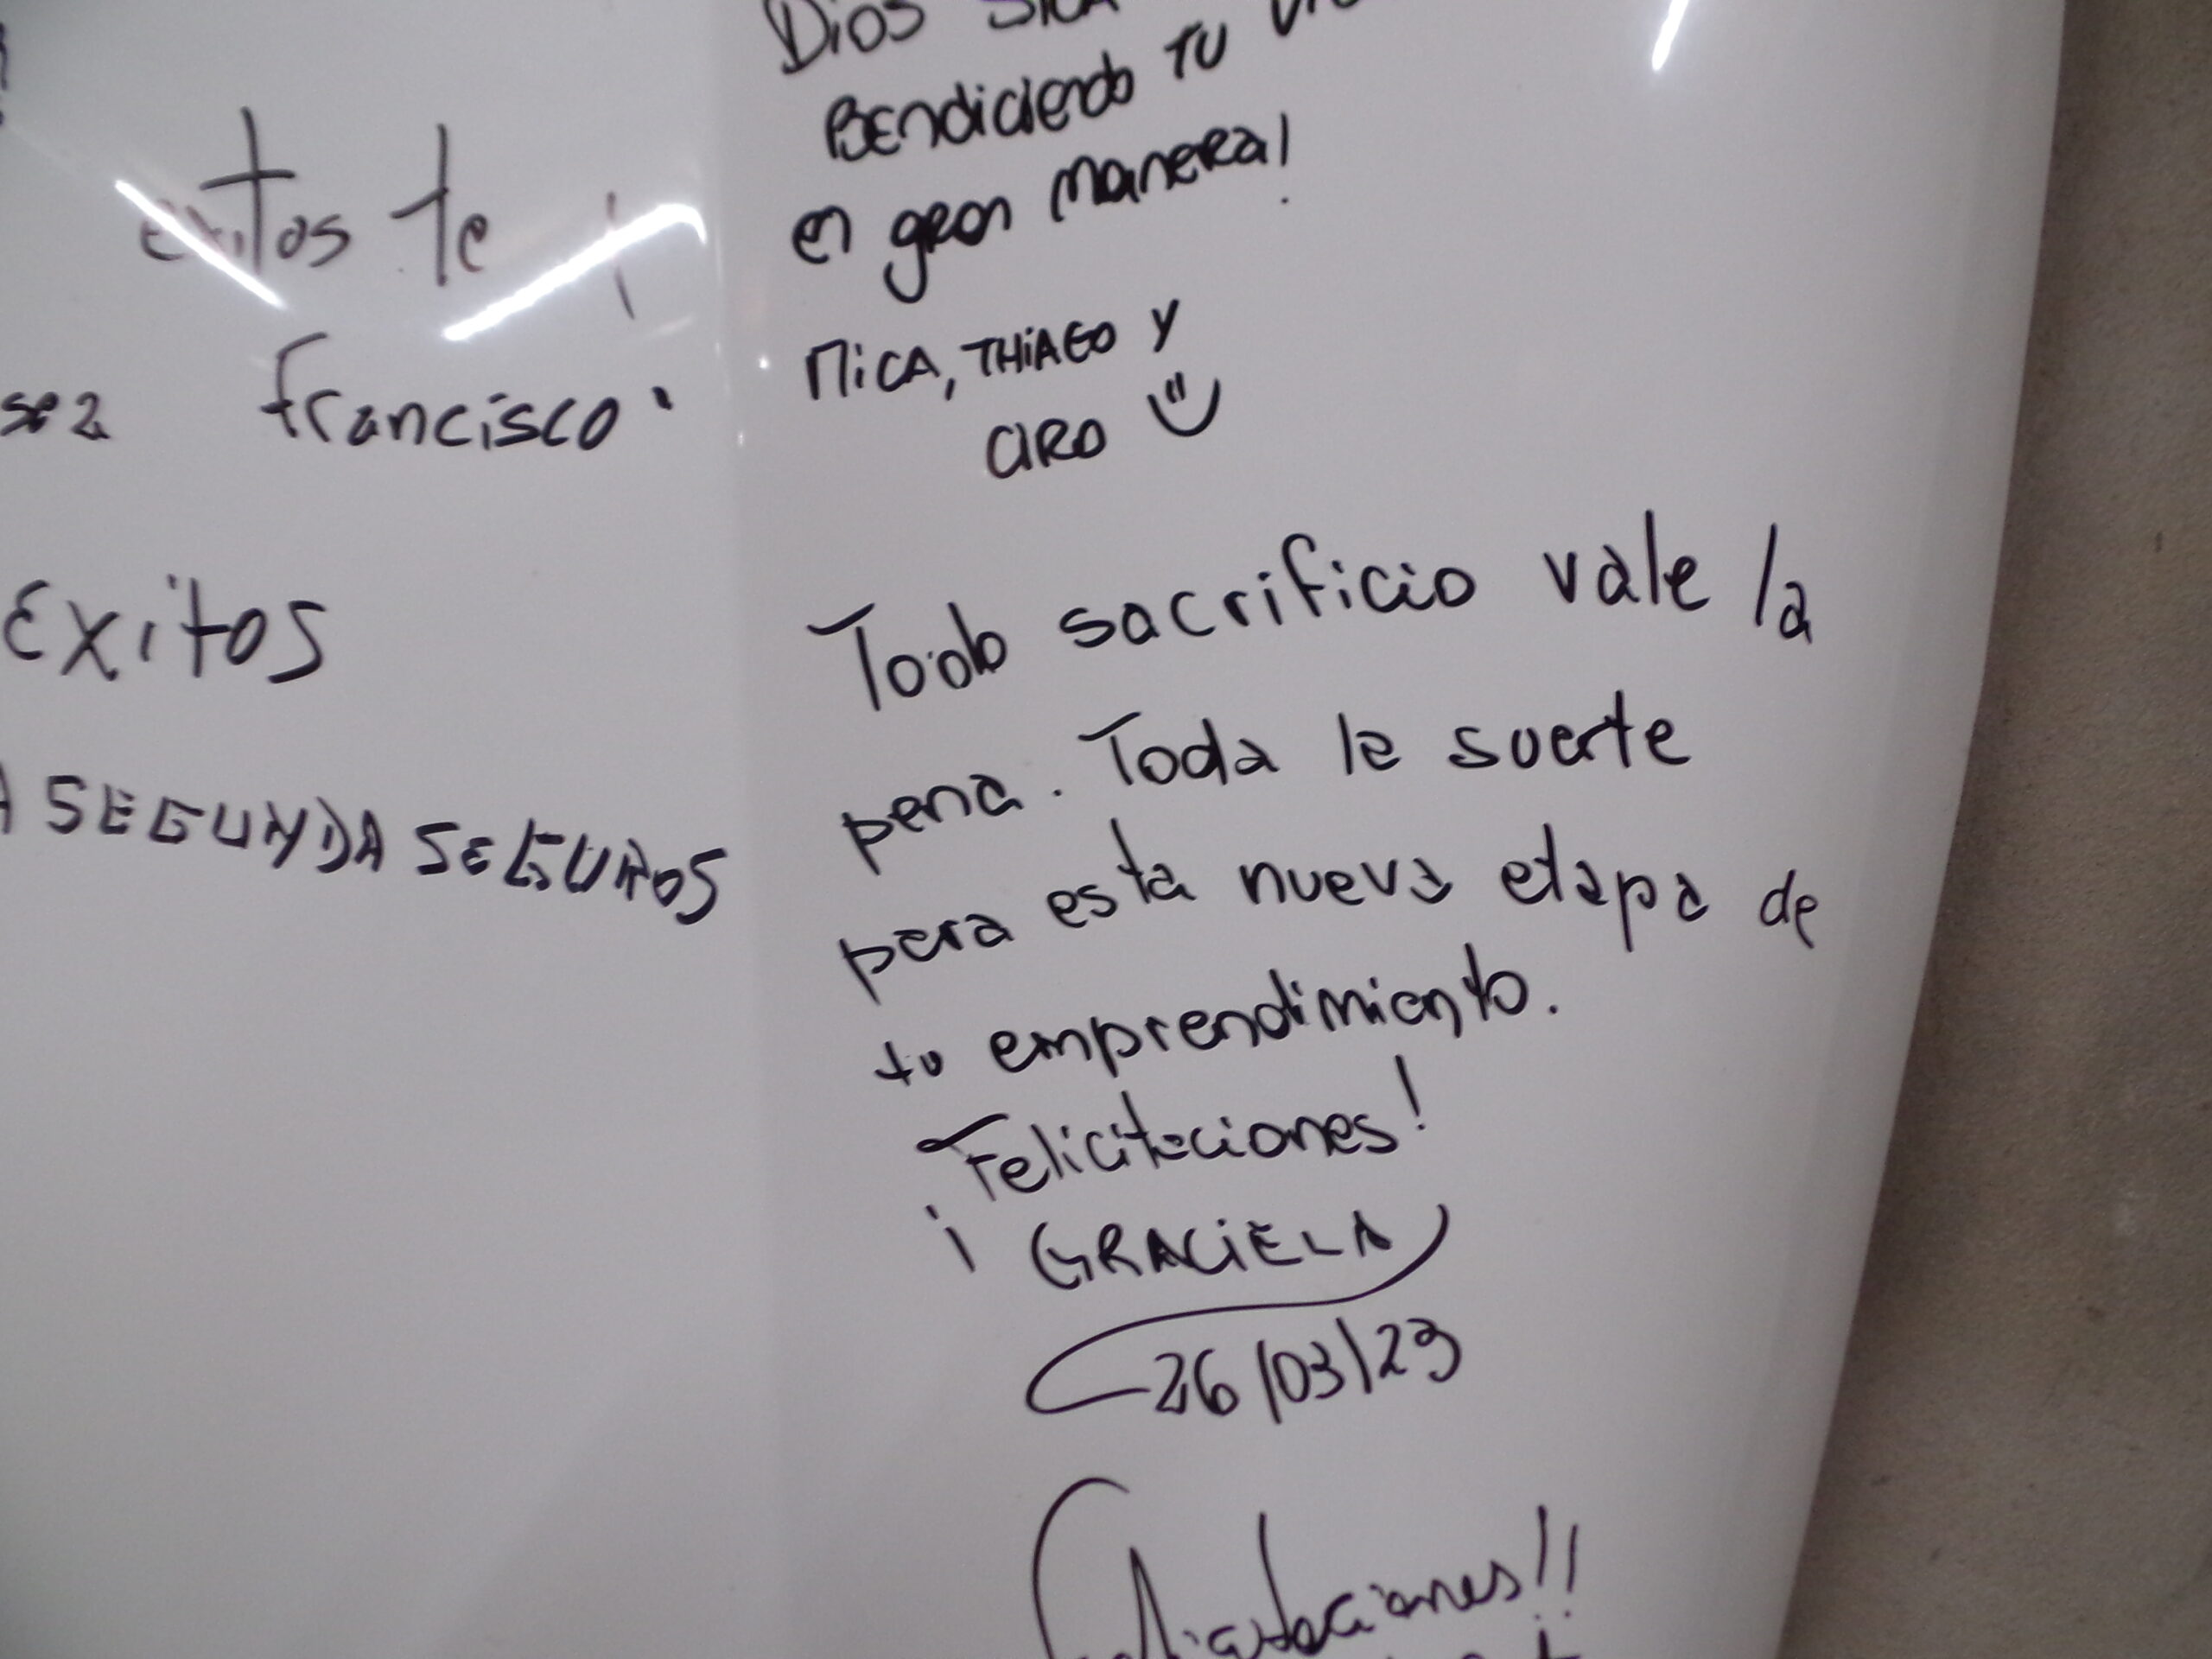 exitos te
Francisco
Exitos
A SEGUNDA SEGUROS
Dios
BENdiciendo TU
en gran manera!
MiCA, THiAGO Y
CIRO
Todo sacrificio vale la
pena. Toda la suerte
para esta nueva etapa de
tu emprendimiento.
¡Felicitaciones!
GRACiELA
26/03/23
Felicitaciones!!